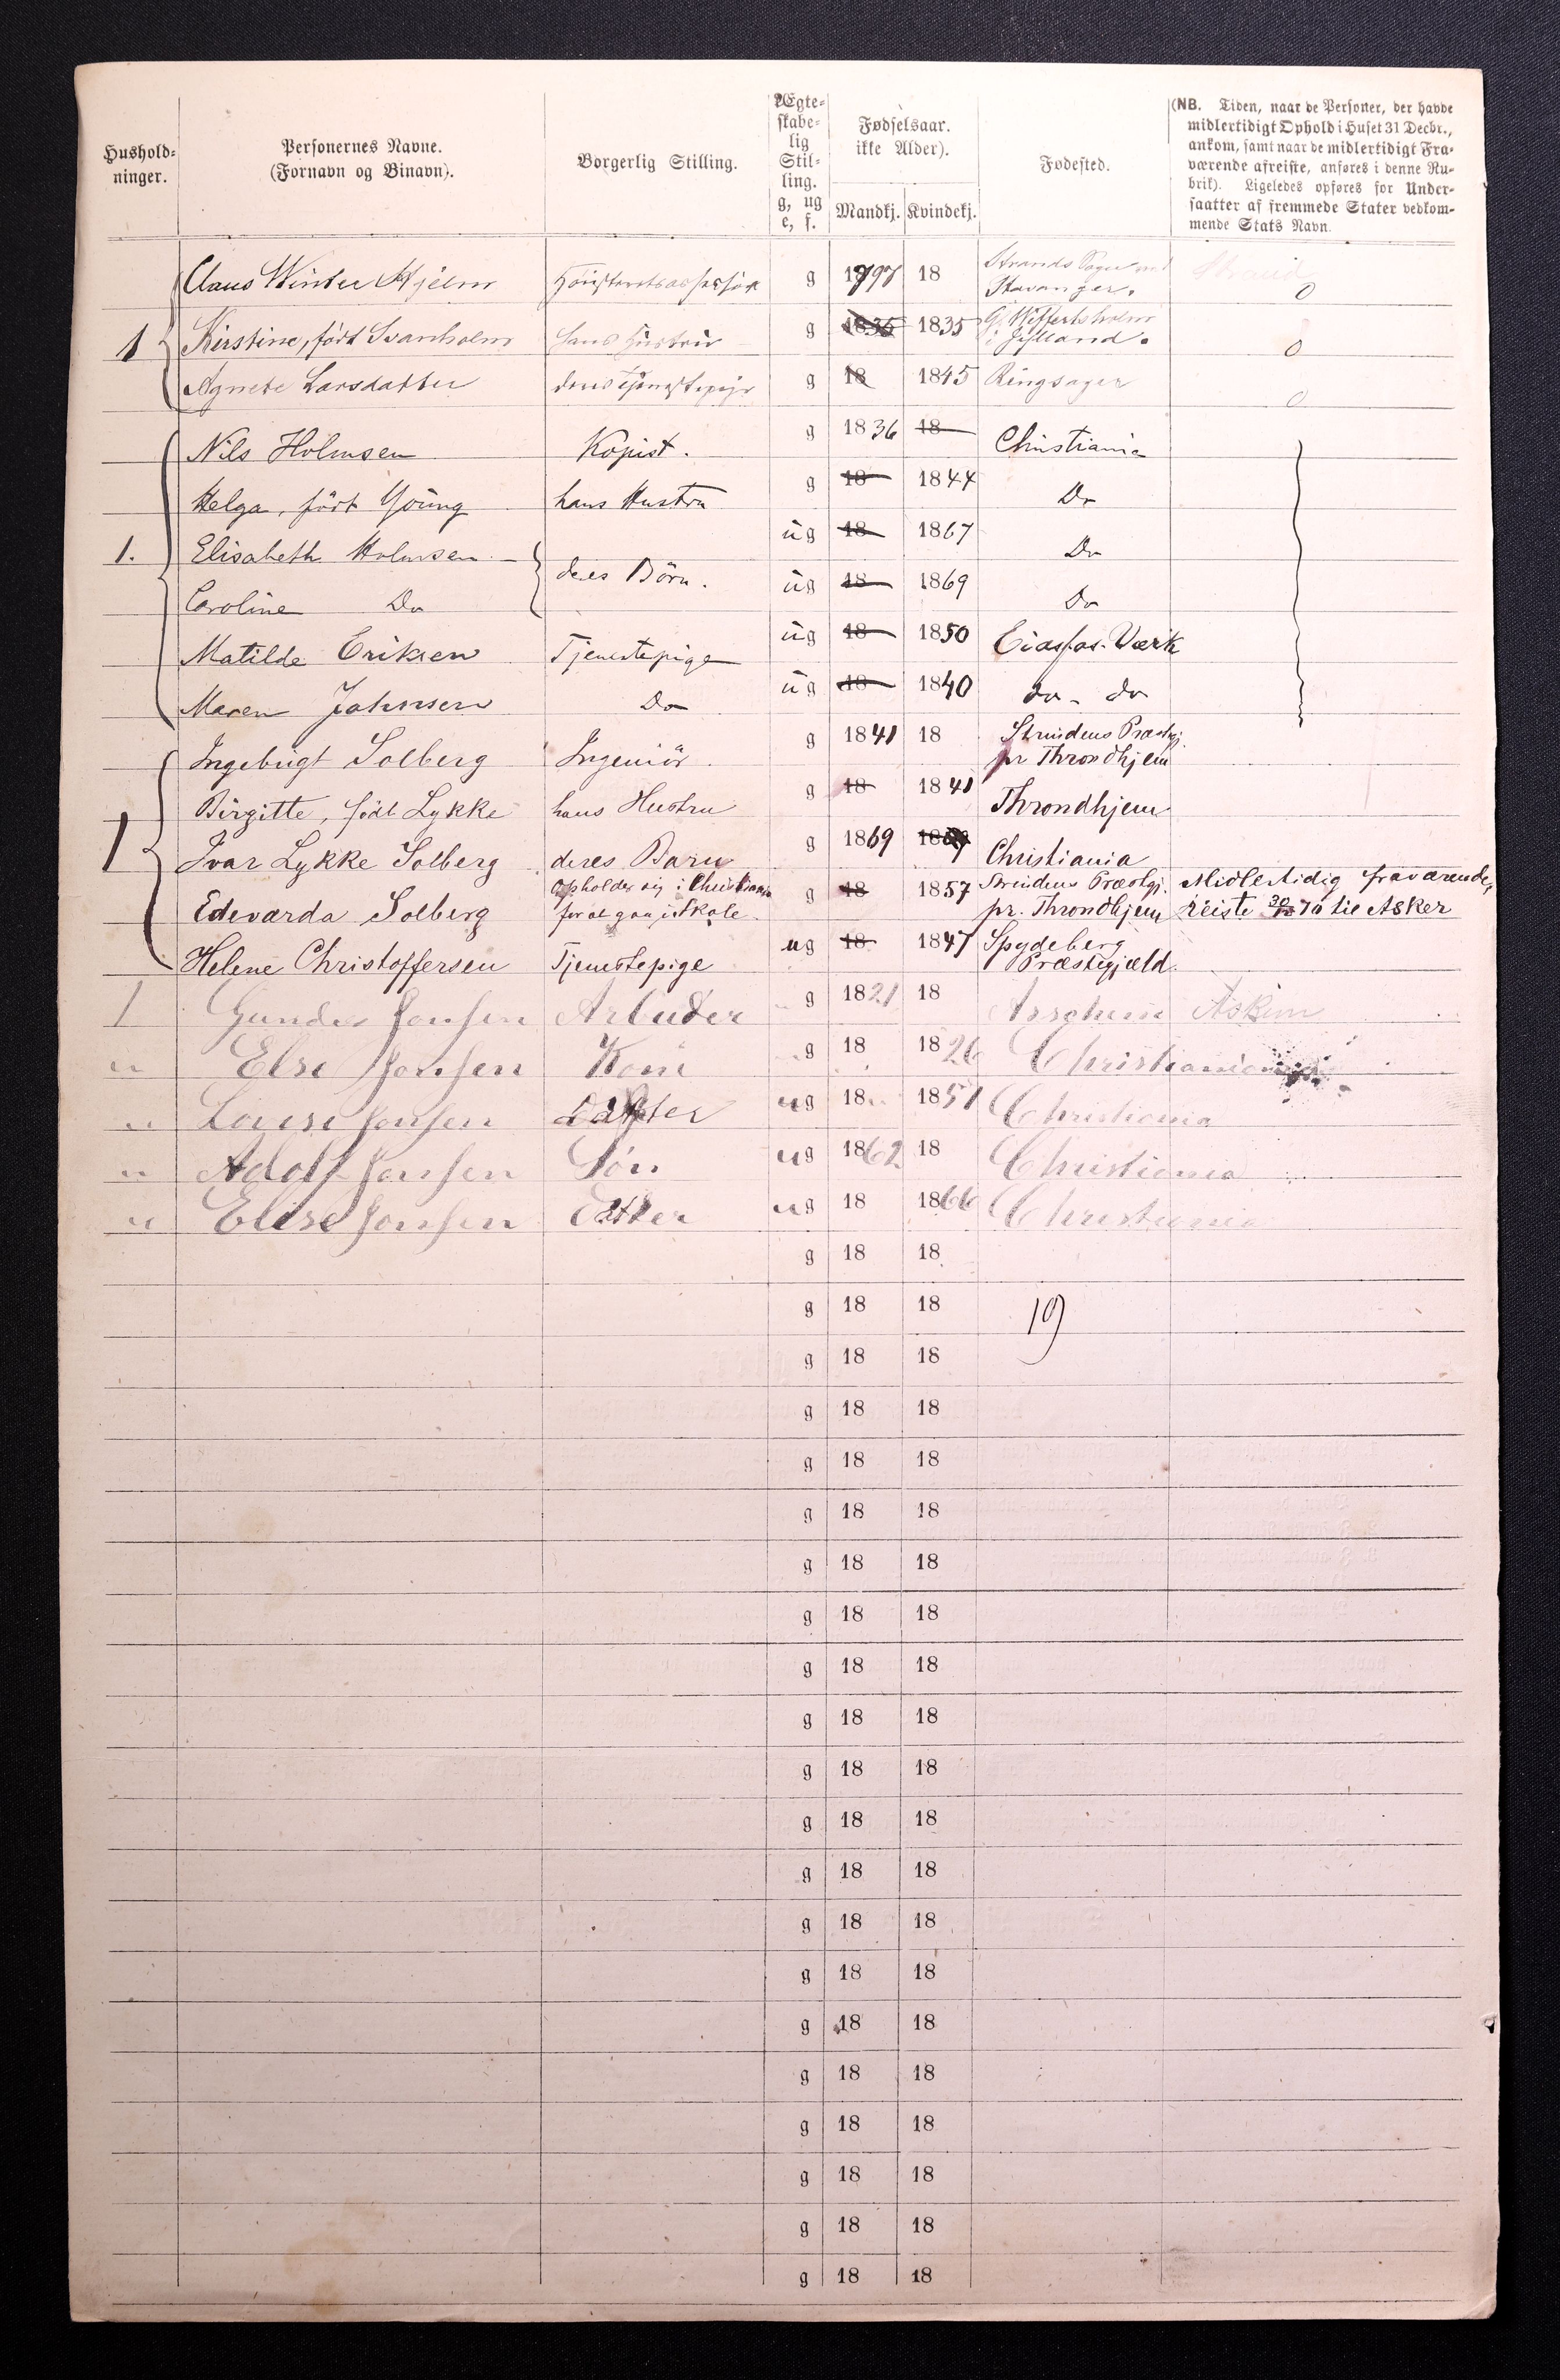 Hushold-
ninger.
Personernes Navne.
(Fornavn og Binavn).
Borgerlig Stilling.
Ægte-
skabe-
lig
Stil-
ling.
g, ug
e, f.
Fødselsaar.
ikke Alder).
Mandkj. Kvindekj.
Fødested.
(NB. Tiden, naar de Personer, der havde
midlertidigt Ophold i Huset 31 Decbr.,
ankom, samt naar de midlertidigt Fra-
værende afreiste, anføres i denne Ru-
brik). Ligeledes opføres for Under-
saatter af fremmede Stater vedkom-
mende Stats Navn.
Claus Winter Hjelm Høiesteretsassessor g 1797 18 Strands Sogn ved
Stavanger. 0
1 Kirstine, født Svanholm hans Hustru g 1835 1835 Wiffertsholm
i Jylland. 0
Agnete Larsdatter deres Tjenestepige g 18 1845 Ringsager 0
Nils Holmsen Kopist. g 1836 18 Christiania
Helga, født Young hans Hustru g 18 1844 Do
1. Elisabeth Holmsen deres Börn. ug 18 1867 Do
Caroline Do ug 18 1869 Do
Matilde Eriksen Tjenestepige ug 18 1850 Værk
Maren Johnsen Do ug 18 1840 do - do
Ingebrigt Solberg Ingeniör g 1841 18 Strindens Præstgj.
pr Throndhjem
Birgitte, född Lykke hans Hustru g 18 1841 Throndhjem
1 Ivar Lykke Solberg deres Barn g 1869 1869 Christiania
Edevarda Solberg opholder sig i Christiania
for at gaa i Skole g 18 1857 Strindens Præstgj.
pr. Throndhjem Midlertidig fraværende,
reiste 70 til Asker
Helene Christoffersen Tjenestepige ug 18 1847 Spydeberg
Præstegjæld.
1 Gunder Jonsen Arbeider g 1821 18 Askim
" Else Jonsen Kone g 18 1826 Christiania
" Lovise Jonsen Datter ug 18 1851 Christiania
" Adolf Jonsen Sön ug 1862 18 Christiania
" Elise Jonsen Datter ug 18 1866 Christiania
g 18 18
g 18 18 19
g 18 18
g 18 18
g 18 18
g 18 18
g 18 18
g 18 18
g 18 18
g 18 18
g 18 18
g 18 18
g 18 18
g 18 18
g 18 18
g 18 18
g 18 18
g 18 18
g 18 18
g 18 18
g 18 18